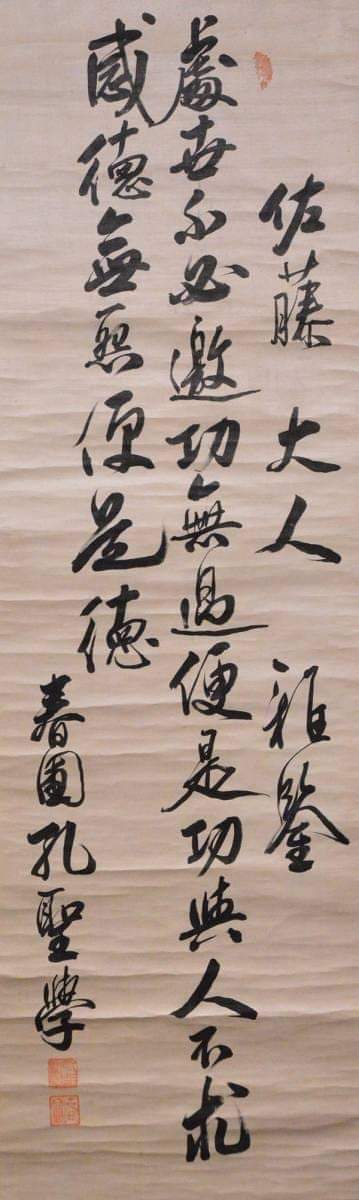 佐藤大人雅鑒
處世不必邀功無過便是功與人不求
感德無怨便是德
春圃孔聖學